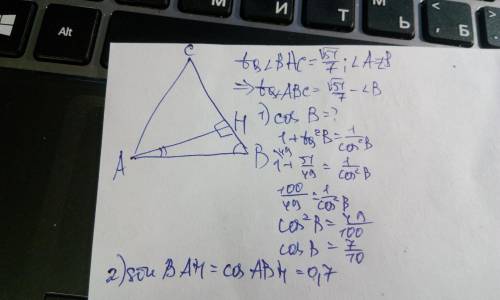 Alt
C
H
A
B
tg∠BAC = √51/7; ∠A=∠B
⇒ tg∠ABC = √51/7 - ∠B
1) cos B = ?
1 + tg²B = 1/cos²B
1 + 51/49 = 1/cos²B
100/49 = 1/cos²B
cos²B = 49/100
cos B = 7/10
2) sin BAH = cos ABH = 0,7